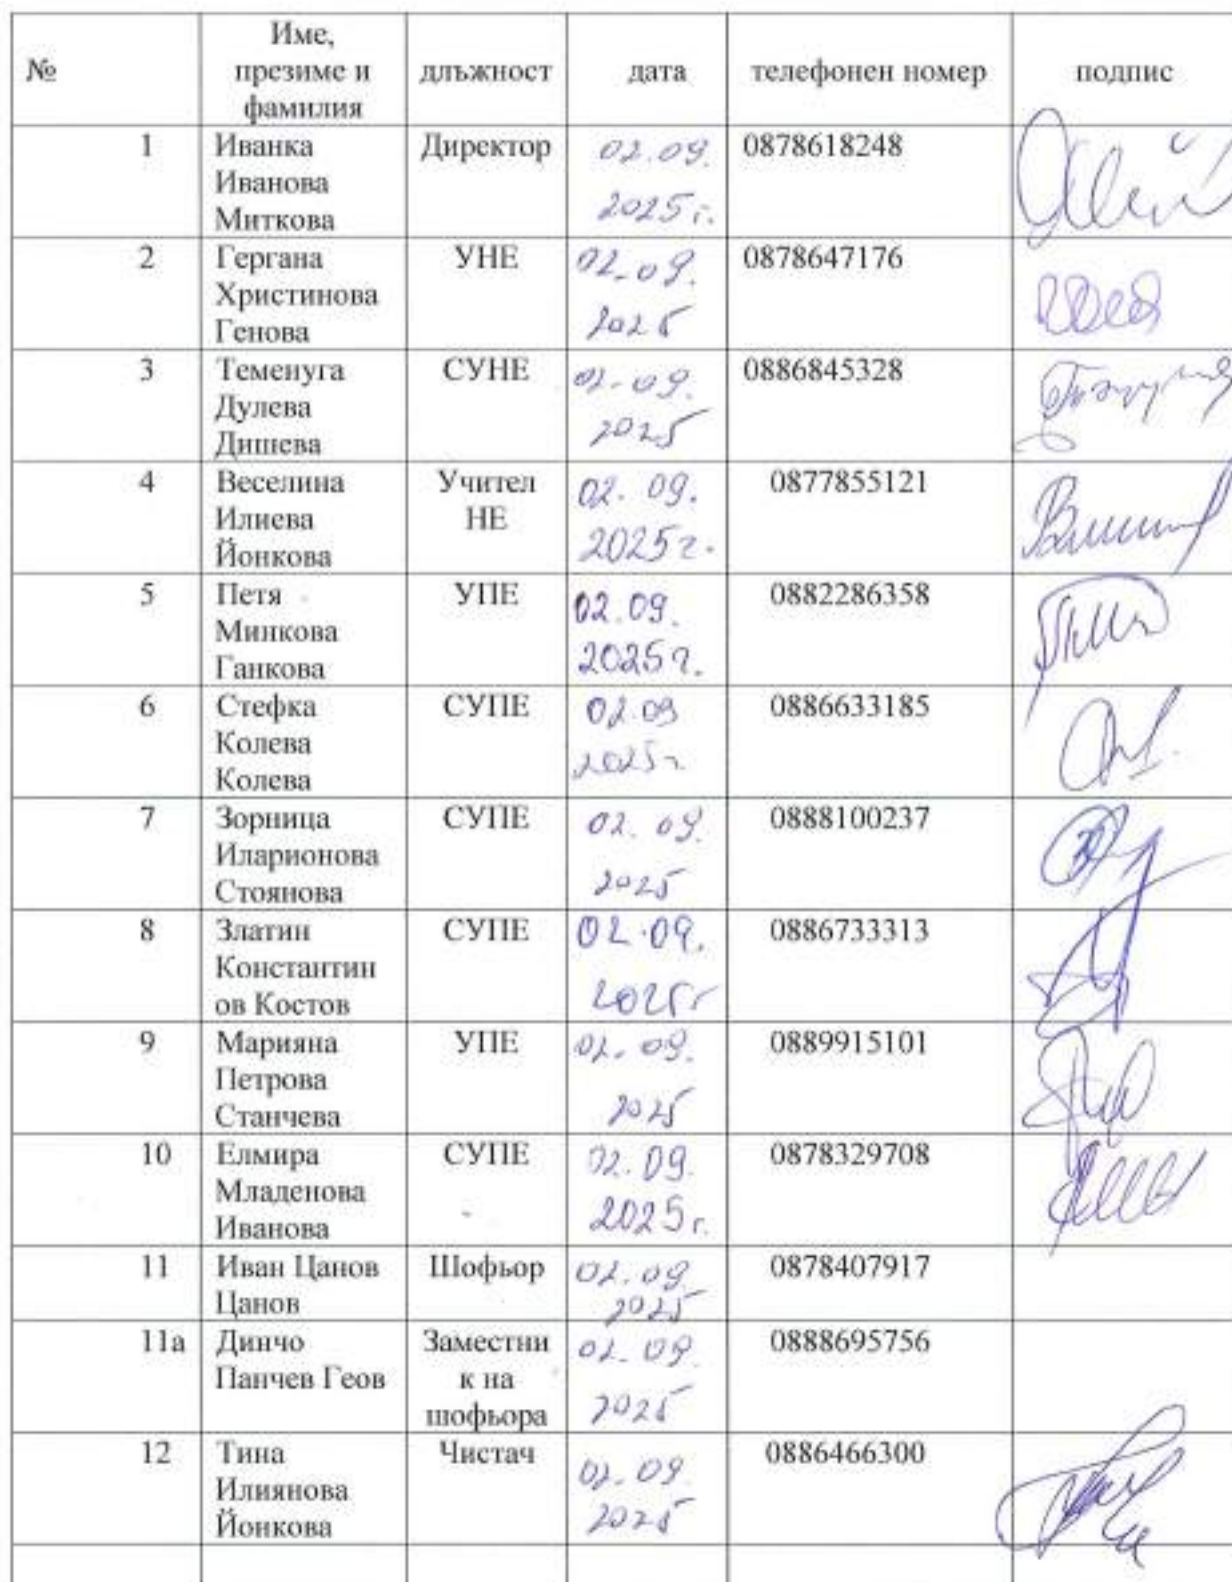 № Име, презиме и фамилия длъжност дата телефонен номер подпис
1 Иванка Иванова Миткова Директор 02.09. 2025 г. 0878618248
2 Гергана Христинова Генова УНЕ 02.09. 2025 0878647176
3 Теменуга Дулева Дишева СУНЕ 02.09. 2025 0886845328
4 Веселина Илиева Йонкова Учител НЕ 02.09. 2025г. 0877855121
5 Петя Минкова Ганкова УПЕ 02.09. 2025г. 0882286358
6 Стефка Колева Колева СУПЕ 02.09 2025г 0886633185
7 Зорница Иларионова Стоянова СУПЕ 02.09. 2025 0888100237
8 Златин Константин ов Костов СУПЕ 02.09. 2025г 0886733313
9 Марияна Петрова Станчева УПЕ 02.09. 2025 0889915101
10 Елмира Младенова Иванова СУПЕ 02.09. 2025г. 0878329708
11 Иван Цанов Цанов Шофьор 02.09. 2025 0878407917
11а Динчо Панчев Геов Заместни к на шофьора 02.09. 2025 0888695756
12 Тина Илиянова Йонкова Чистач 02.09. 2025 0886466300